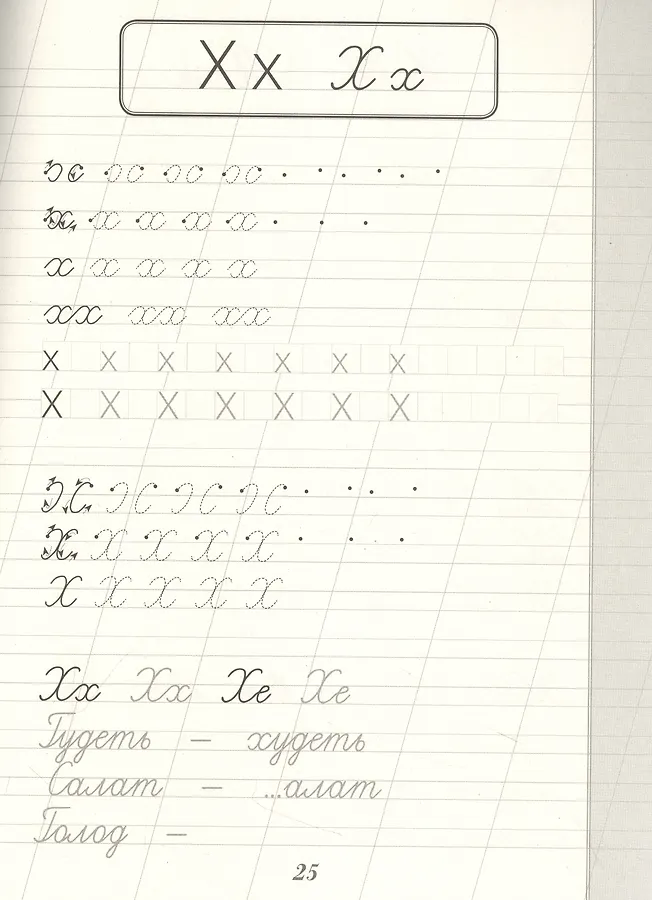 Хх Хх
ɔc ɔc ɔc ɔc
х х х х х
х х х х х
хх хх хх
х х х х х х х
Х Х Х Х Х Х Х
ƆС ƆС ƆС ƆС
Х Х Х Х Х
Х Х Х Х Х
Хх Хх Хе Хе
Гудеть – худеть
Салат – ...алат
Голод –
25